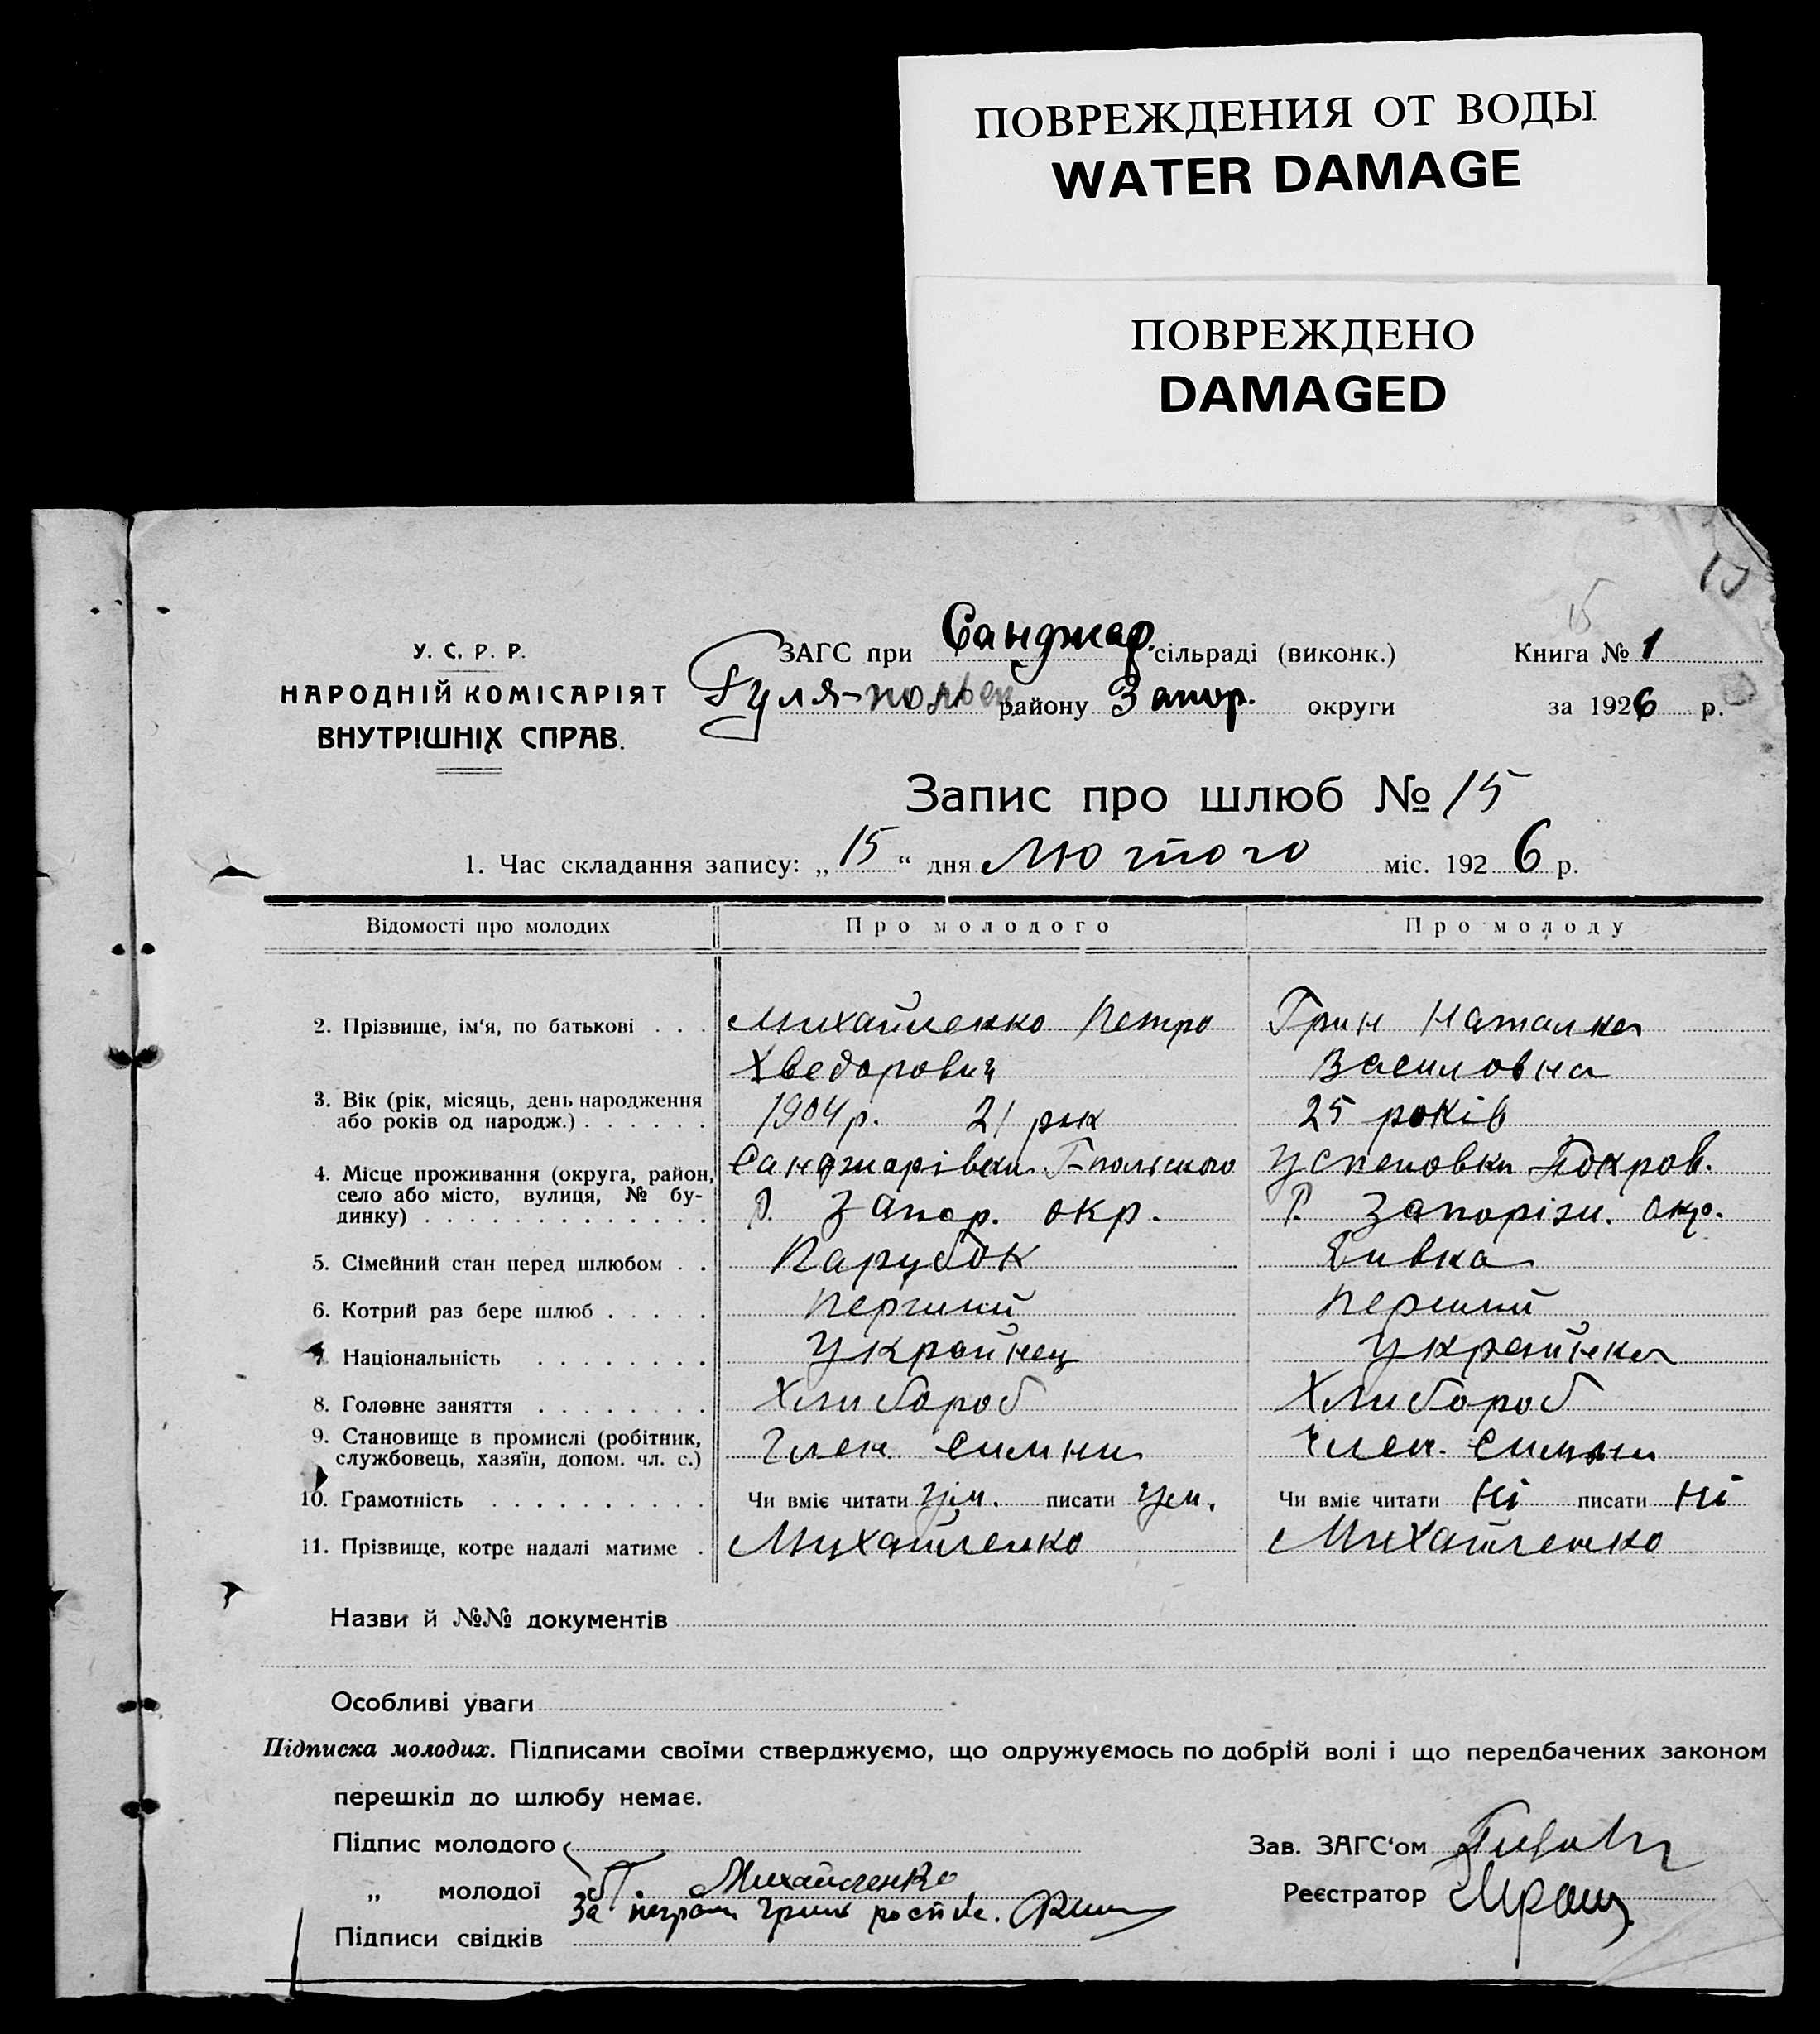 ПОВРЕЖДЕНИЯ ОТ ВОДЫ
WATER DAMAGE
ПОВРЕЖДЕНО
DAMAGED
У. С. Р. Р.
НАРОДНІЙ КОМІСАРІЯТ
ВНУТРІШНІХ СПРАВ.
ЗАГС при Санджар. сільраді (виконк.)
Гуля-польськ району Запор. округи
Книга № 1
за 1926 р.
Запис про шлюб № 15
1. Час складання запису: „ 15 “ дня Лютого міс. 1926 р.
Відомості про молодих Про молодого Про молоду
2. Прізвище, ім‘я, по батькові . . . Михайленко Петро Грин Наталка
Хведорович Василовна
3. Вік (рік, місяць, день народження
або років од народж.) . . . . . . 1904 р. 21 рик 25 років
4. Місце проживання (округа, район, Санджарівки Г-польского Успеновки Покров.
село або місто, вулиця, № бу- Р. Запор. окр. Р. Запоріжи. окр.
динку) . . . . . . . . . . . . .
5. Сімейний стан перед шлюбом . . Парубок Дивка
6. Котрий раз бере шлюб . . . . . Перший Перший
7. Національність . . . . . . . . Украйнец Украйнка
8. Головне заняття . . . . . . . . Хлибороб Хлибороб
9. Становище в промислі (робітник,
службовець, хазяїн, допом. чл. с.) Член Симни Член. Симни
10. Грамотність . . . . . . . . . . Чи вміє читати Уім. писати Уем. Чи вміє читати Ні писати Ні
11. Прізвище, котре надалі матиме . Михайленко Михайленко
Назви й №№ документів
Особливі уваги
Підписка молодих. Підписами своїми стверджуємо, що одружуємось по добрій волі і що передбачених законом
перешкід до шлюбу немає.
Підпис молодого
Зав. ЗАГС‘ом
„ молодої П. Михайленко
Реєстратор
За Грин
Підписи свідків